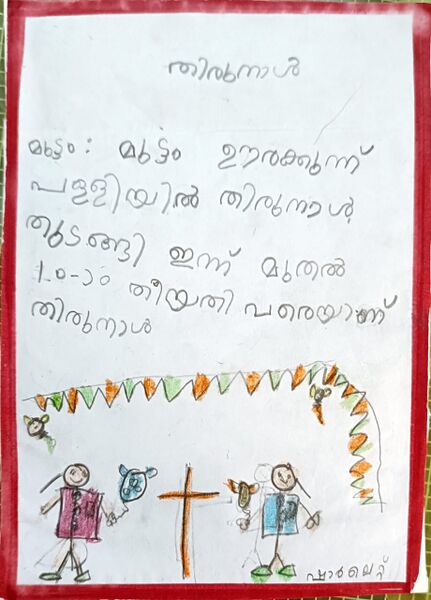 തിരുനാൾ
മുട്ടം: മുട്ടം ഊരക്കുന്ന്
പള്ളിയിൽ തിരുനാൾ
തുടങ്ങി ഇന്ന് മുതൽ
10-ാം തീയതി വരെയാണ്
തിരുനാൾ
ഷാർലെറ്റ്